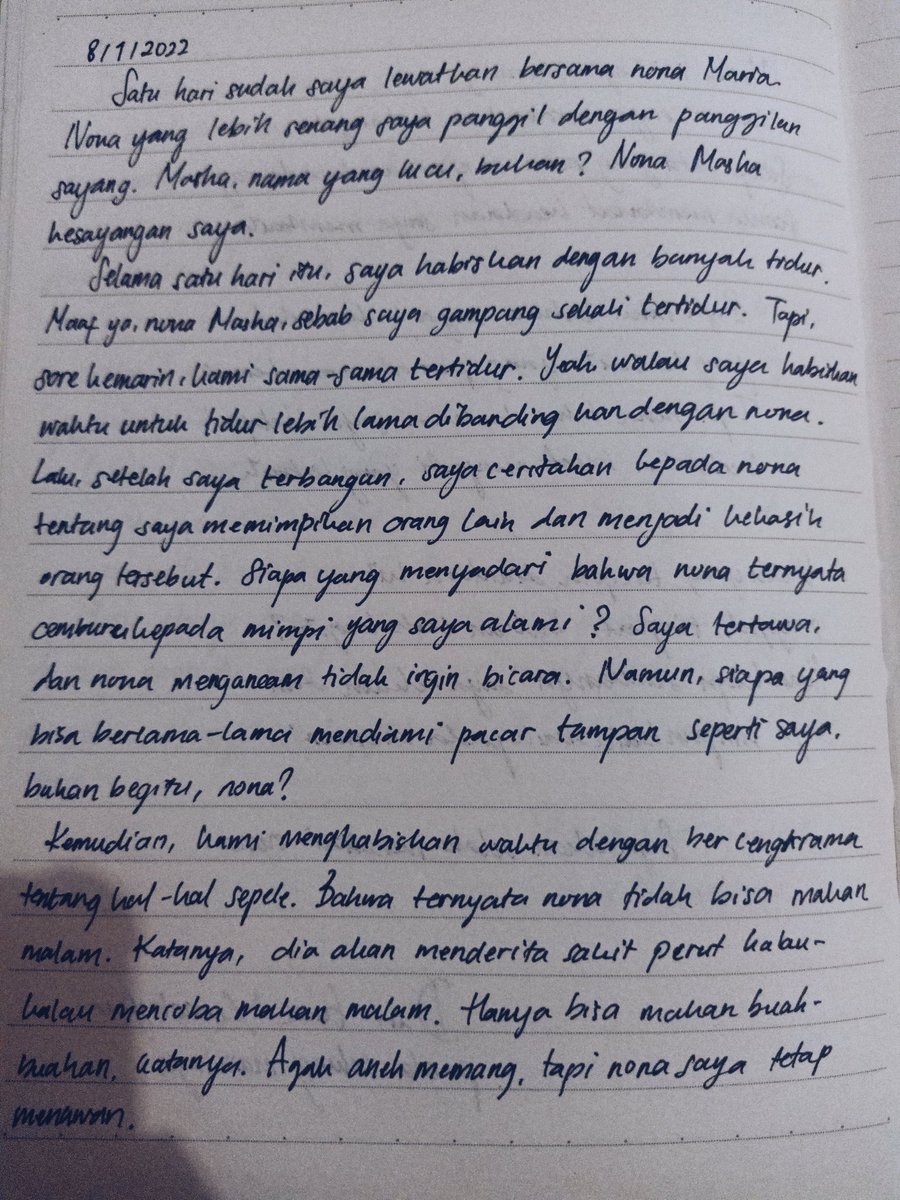 8/1/2022
Satu hari sudah saya lewatkan bersama nona Maria.
Nona yang lebih senang saya panggil dengan panggilan
sayang. Masha, nama yang lucu, bukan? Nona Masha
kesayangan saya.
Selama satu hari itu, saya habiskan dengan banyak tidur.
Maaf ya, nona Masha, sebab saya gampang sekali tertidur. Tapi,
sore kemarin, kami sama-sama tertidur. Yeah, walau saya habiskan
waktu untuk tidur lebih lama dibanding kan dengan nona.
Lalu, setelah saya terbangun, saya ceritakan kepada nona
tentang saya memimpikan orang lain dan menjadi kekasih
orang tersebut. Siapa yang menyadari bahwa nona ternyata
cemburu kepada mimpi yang saya alami? Saya tertawa,
dan nona mengancam tidak ingin bicara. Namun, siapa yang
bisa berlama-lama mendiami pacar tampan seperti saya,
bukan begitu, nona?
Kemudian, kami menghabiskan waktu dengan ber cengkrama
tentang hal-hal sepele. Bahwa ternyata nona tidak bisa makan
malam. Katanya, dia akan menderita sakit perut kalau-
kalau mencoba makan malam. Hanya bisa makan buah-
buahan, katanya. Agak aneh memang, tapi nona saya tetap
menawan.